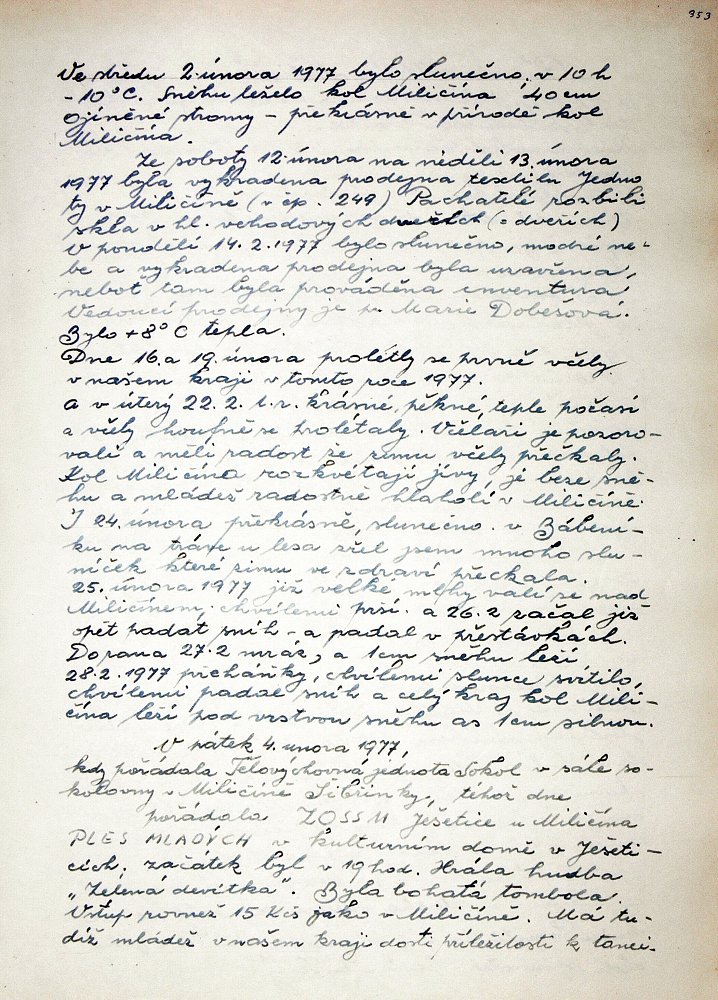 353
Ve středu 2. února 1977 bylo slunečno, v 10 h
-10°C. Sněhu leželo kol Miličína 40 cm
Ojíněné stromy - překrásné v přírodě kol
Miličína.
Ze soboty 12. února na neděli 13. února
1977 byla vykradena prodejna textilu Jedno
ty v Miličíně (v čp. 249) Pachatelé rozbili
skla v hl. vchodových dveřích (= dveřích)
V pondělí 14. 2. 1977 bylo slunečno, modré ne-
be a vykradena prodejna byla uzavřena,
neboť tam byla prováděna inventura.
Vedoucí prodejny je p. Marie Dobešová.
Bylo +8°C tepla.
Dne 16. a 19. února prolétly se prvně včely
v našem kraji v tomto roce 1977.
a v úterý 22. 2. t. r. krásné, pěkné, teplé počasí
a včely houfně se prolétaly. Včelaři je pozoro-
vali a měli radost že zimu včely přečkaly.
Kol Miličína rozkvétají jívy, je beze sně-
hu a mládež radostně hlaholí v Miličíně.
I 24. února překrásně, slunečno. v Bábení-
ku na trávě u lesa zřel jsem mnoho slu-
níček které zimu ve zdraví přečkala.
25. února 1977 již velké mlhy valí se nad
Miličínem, chvílemi prší. a 26. 2 začal již
opět padat sníh - a padal v přestávkách.
Do rana 27. 2 mráz, a 1 cm sněhu leží,
28. 2. 1977 přeháňky, chvílemi slunce svítilo,
chvílemi padal sníh a celý kraj kol Mili-
čína leží pod vrstvou sněhu as 1 cm silnou.
V pátek 4. února 1977,
kdy pořádala Tělovýchovná jednota Sokol v sále so-
kolovny v Miličíně Šibřinky, téhož dne
pořádala ZOSSM Ješetice u Miličína
PLES MLADÝCH v kulturním domě v Ješeti-
cích, začátek byl v 19 hod. Hrála hudba
„Zelená devítka". Byla bohatá tombola.
Vstup rovněž 15 Kčs jako v Miličíně. Má tu-
díž mládež v našem kraji dosti příležitosti k tanci.